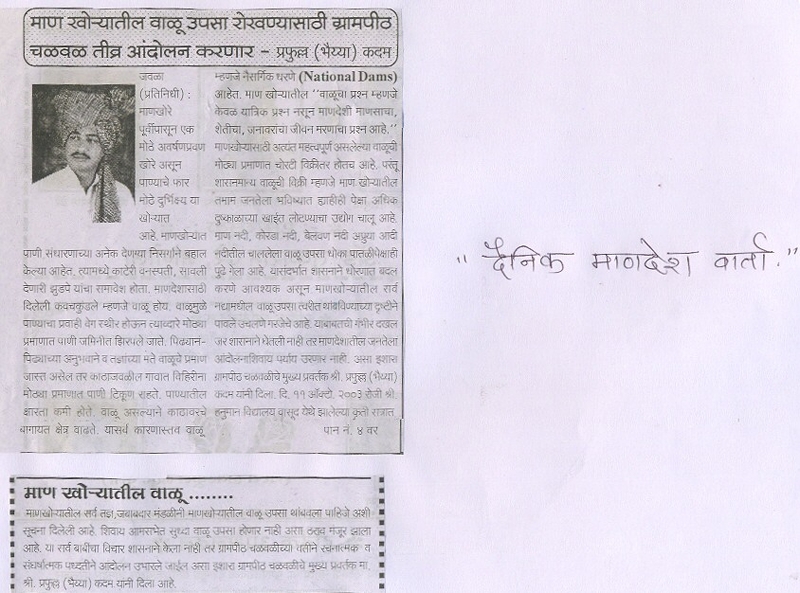 माण खोऱ्यातील वाळू उपसा रोखण्यासाठी ग्रामपीठ
चळवळ तीव्र आंदोलन करणार – प्रफुल्ल (भैय्या) कदम
जवळा
(प्रतिनिधी) :
माणखोरे
पूर्वीपासून एक
मोठे अवर्षणप्रवण
खोरे असून
पाण्याचे फार
मोठे दुर्भिक्ष्य या
खोऱ्यात
आहे. माणखोऱ्यात
पाणी संधारणाच्या अनेक देणग्या निसर्गाने बहाल
केल्या आहेत. त्यामध्ये काटेरी वनस्पती, सावली
देणारी झुडपे यांचा समावेश होता. माणदेशासाठी
दिलेली कवचकुंडले म्हणजे वाळू होय. वाळूमुळे
पाण्याचा प्रवाही वेग स्थीर होऊन त्याव्दारे मोठ्या
प्रमाणात पाणी जमिनीत झिरपले जाते. पिढ्यान-
पिढ्याच्या अनुभवाने व तज्ञाच्या मते वाळूचे प्रमाण
जास्त असेल तर काठाजवळील गावात विहिरीना
मोठ्या प्रमाणात पाणी टिकुण राहते. पाण्यातील
क्षारता कमी होते. वाळू असल्याने काठावरचे
बागायत क्षेत्र वाढते. यासर्व कारणास्तव वाळू
म्हणजे नैसर्गिक धरणे (National Dams)
आहेत. माण खोऱ्यातील ''वाळूचा प्रश्न म्हणजे
केवळ यात्रिक प्रश्न नसून माणदेशी माणसाचा,
शेतीचा, जनावरांचा जीवन मरणाचा प्रश्न आहे.''
माणखोऱ्यासाठी अत्यंत महत्वपूर्ण असलेल्या वाळूची
मोठ्या प्रमाणात चोरटी विक्रीतर होतच आहे. परंतू
शासनमान्य वाळूची विक्री म्हणजे माण खोऱ्यातील
तमाम जनतेला भविष्यात ह्याहीही पेक्षा अधिक
दुष्काळाच्या खाईत लोटण्याचा उद्योग चालू आहे.
माण नदी, कोरडा नदी, बेलवण नदी अफ्रुया आदी
नदीतील चाललेला वाळू उपसा धोका पातळीपेक्षाही
पुढे गेला आहे. यासंदर्भात शासनाने धोरणात बदल
करणे आवश्यक असून माणखोऱ्यातील सर्व
नद्यामधील वाळू उपसा त्वरीत थांबविण्याच्या दृष्टीने
पावले उचलणे गरजेचे आहे. याबाबतची गंभीर दखल
जर शासनाने घेतली नाही तर माणदेशातील जनतेला
आंदोलनाशिवाय पर्याय उरणार नाही. असा इशारा
ग्रामपीठ चळवळीचे मुख्य प्रवर्तक श्री. प्रफुल्ल (भैय्या)
कदम यांनी दिला. दि. ११ ऑक्टो. २००३ रोजी श्री.
हनुमान विद्यालय वासूद येथे झालेल्या कृती सत्रात
पान नं. ४ वर
" दैनिक माणदेश वार्ता. "
माण खोऱ्यातील वाळू ........
माणखोऱ्यातील सर्व तज्ञ,जबाबदार मंडळींनी माणखोऱ्यातील वाळू उपसा थांबवला पाहिजे अशी
सूचना दिलेली आहे. शिवाय आमसभेत सुध्दा वाळू उपसा होणार नाही असा ठराव मंजूर झाला
आहे. या सर्व बाबींचा विचार शासनाने केला नाही तर ग्रामपीठ चळवळीच्या वतीने रचनात्मक व
संघर्षात्मक पध्दतीने आंदोलन उभारले जाईल असा इशारा ग्रामपीठ चळवळीचे मुख्य प्रवर्तक मा.
श्री. प्रफुल्ल (भैय्या) कदम यांनी दिला आहे.